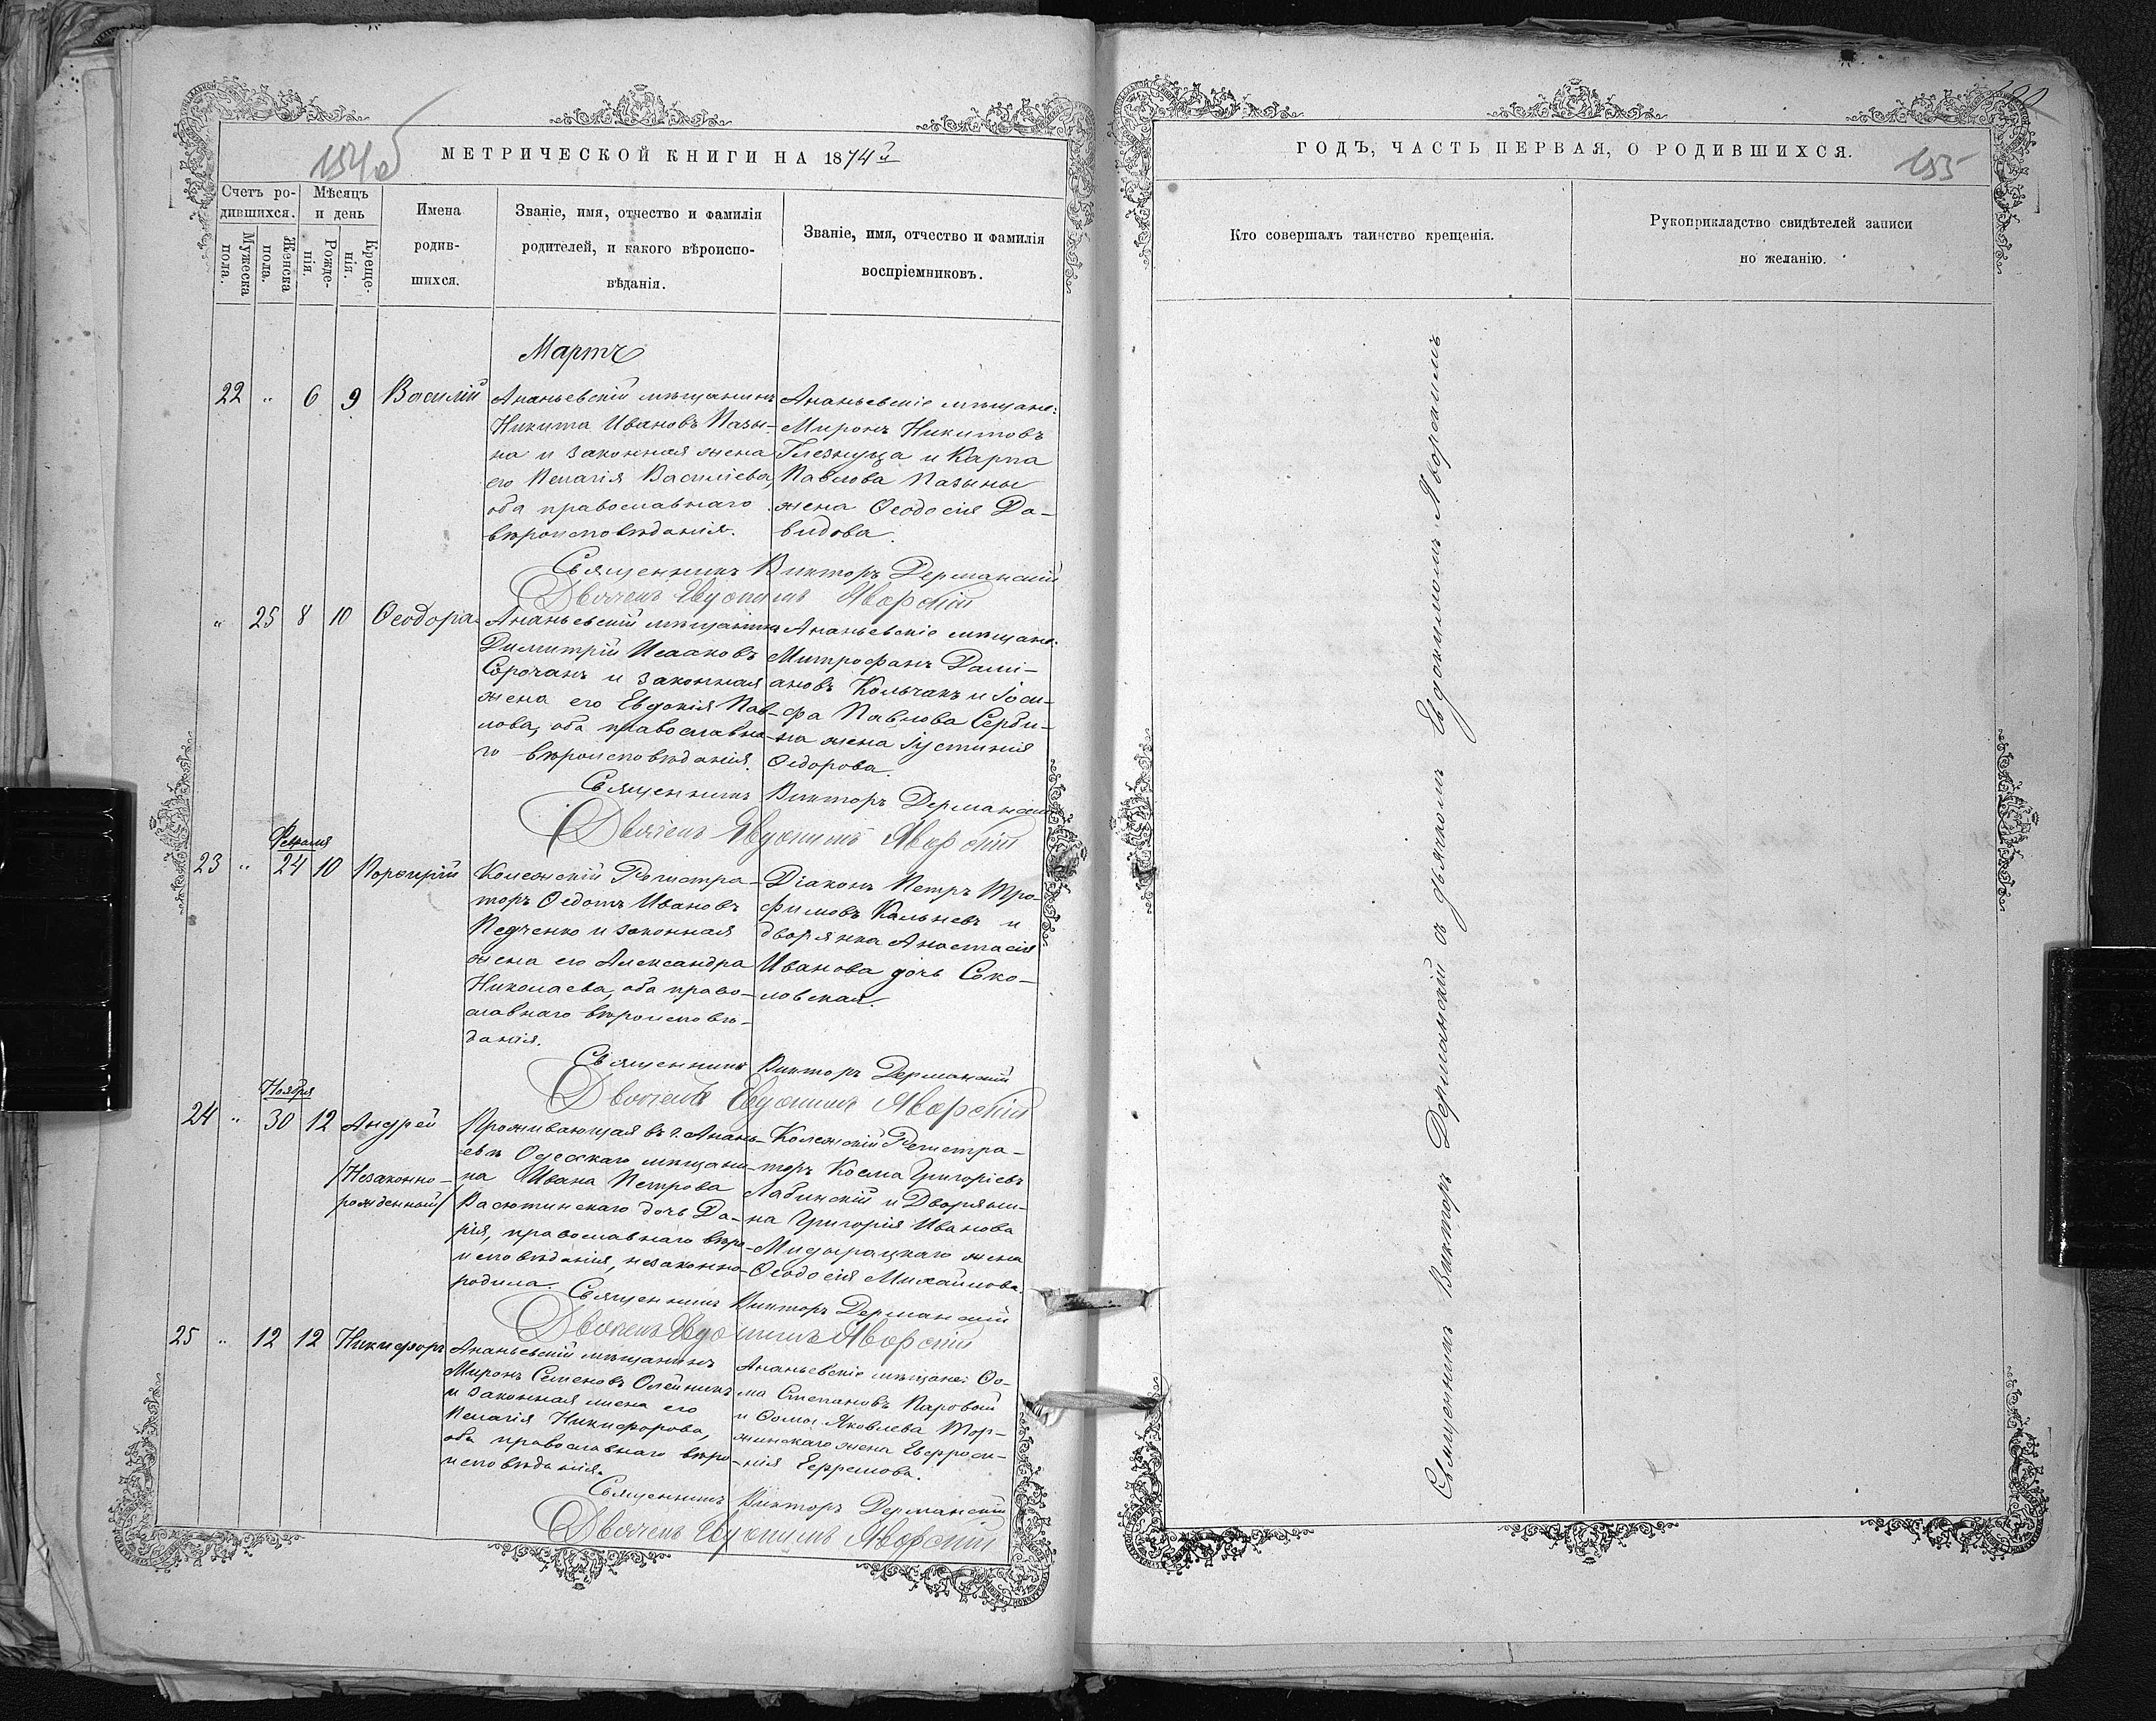 154об
МЕТРИЧЕСКОЙ КНИГИ НА 1874й
Счетъ ро-
дившихся.
Мужеска
пола.
Женска
пола.
Мѣсяцъ
и день
Рожде-
нія.
Креще-
нія.
Имена
родив-
шихся.
Званіе, имя, отчество и фамилія
родителей, и какого вѣроиспо-
вѣданія.
Званіе, имя, отчество и фамилія
воспріемниковъ.
Мартъ
22 " 6 9 Василій
Ананьевскій мѣщанинъ
Никита Ивановъ Пазы-
на и законная жена
его Пелагія Василіева,
оба православнаго
вѣроисповѣданія.
Ананьевскіе мѣщане:
Миронъ Никитовъ
Глезнуца и Карпа
Павлова Пазыны
жена Ѳеодосія Да-
видова.
Священникъ Викторъ Дерманскій
Дьячекъ Евдокимъ Яворскій
" 25 8 10 Ѳеодора
Ананьевскій мѣщанинъ
Димитрій Исааковъ
Сорочанъ и законная
жена его Евдокія Пав-
лова, оба православна-
го вѣроисповѣданія.
Ананьевскіе мѣщане:
Митрофанъ Дамі-
ановъ Кольчакъ и Іоси-
фа Павлова Серби-
на жена Іустинія
Ѳедорова.
Священникъ Викторъ Дерманскій
Дьячекъ Евдокимъ Яворскій
Февраля
23 " 24 10 Порфирій
Колежскій Регистра-
торъ Ѳедотъ Ивановъ
Педченко и законная
жена его Александра
Николаева, оба право-
славнаго вѣроисповѣ-
данія.
Діаконъ Петръ Тро-
фимовъ Кальневъ и
дворянка Анастасія
Иванова дочь Соко-
ловская.
Священникъ Викторъ Дерманскій
Дьячекъ Евдокимъ Яворскій
Ноября
24 " 30 12 Андрей
/Незаконно-
рожденный/
Проживающая въ г. Анань-
евѣ Одесскаго мѣщани-
на Ивана Петрова
Васютинскаго дочь Да-
рія, православнаго вѣро-
исповѣданія, незаконно
родила.
Колежскій Регистра-
торъ Косма Григоріевъ
Лабинскій и Дворяни-
на Григорія Иванова
жена
Ѳеодосія Михайлова
Священникъ Викторъ Дерманскій
Дьячекъ Евдокимъ Яворскій
25 " 12 12 Никифоръ
Ананьевскій мѣщанинъ
Миронъ Семеновъ Олейникъ
и законная жена его
Пелагія Никифорова,
оба православнаго вѣро-
исповѣданія.
Ананьевскіе мѣщане: Ѳо-
ма Степановъ Паровой
и Ѳомы Яковлева Тор-
жинскаго жена Евфроси-
нія Ефремова.
Священникъ Викторъ Дерманскій
Дьячекъ Евдокимъ Яворскій
ГОДЪ, ЧАСТЬ ПЕРВАЯ, О РОДИВШИХСЯ.
155
Кто совершалъ таинство крещенія.
Рукоприкладство свидѣтелей записи
по желанію.
Священникъ Викторъ Дерманскій съ дьячкомъ Евдокимомъ Яворскимъ